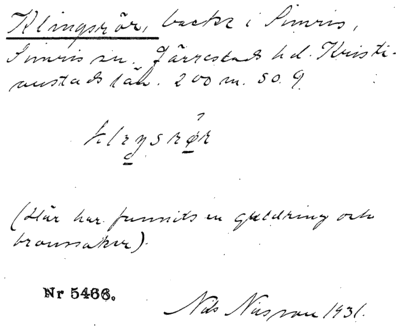 Klingsrör, backe i Simris,
Simris sn. Järrestads hd. Kristi-
anstads län. 200 m. SO. 9.
(Här har funnits en guldring och
bronssaker).
Nr 5466.
Nils 1931.